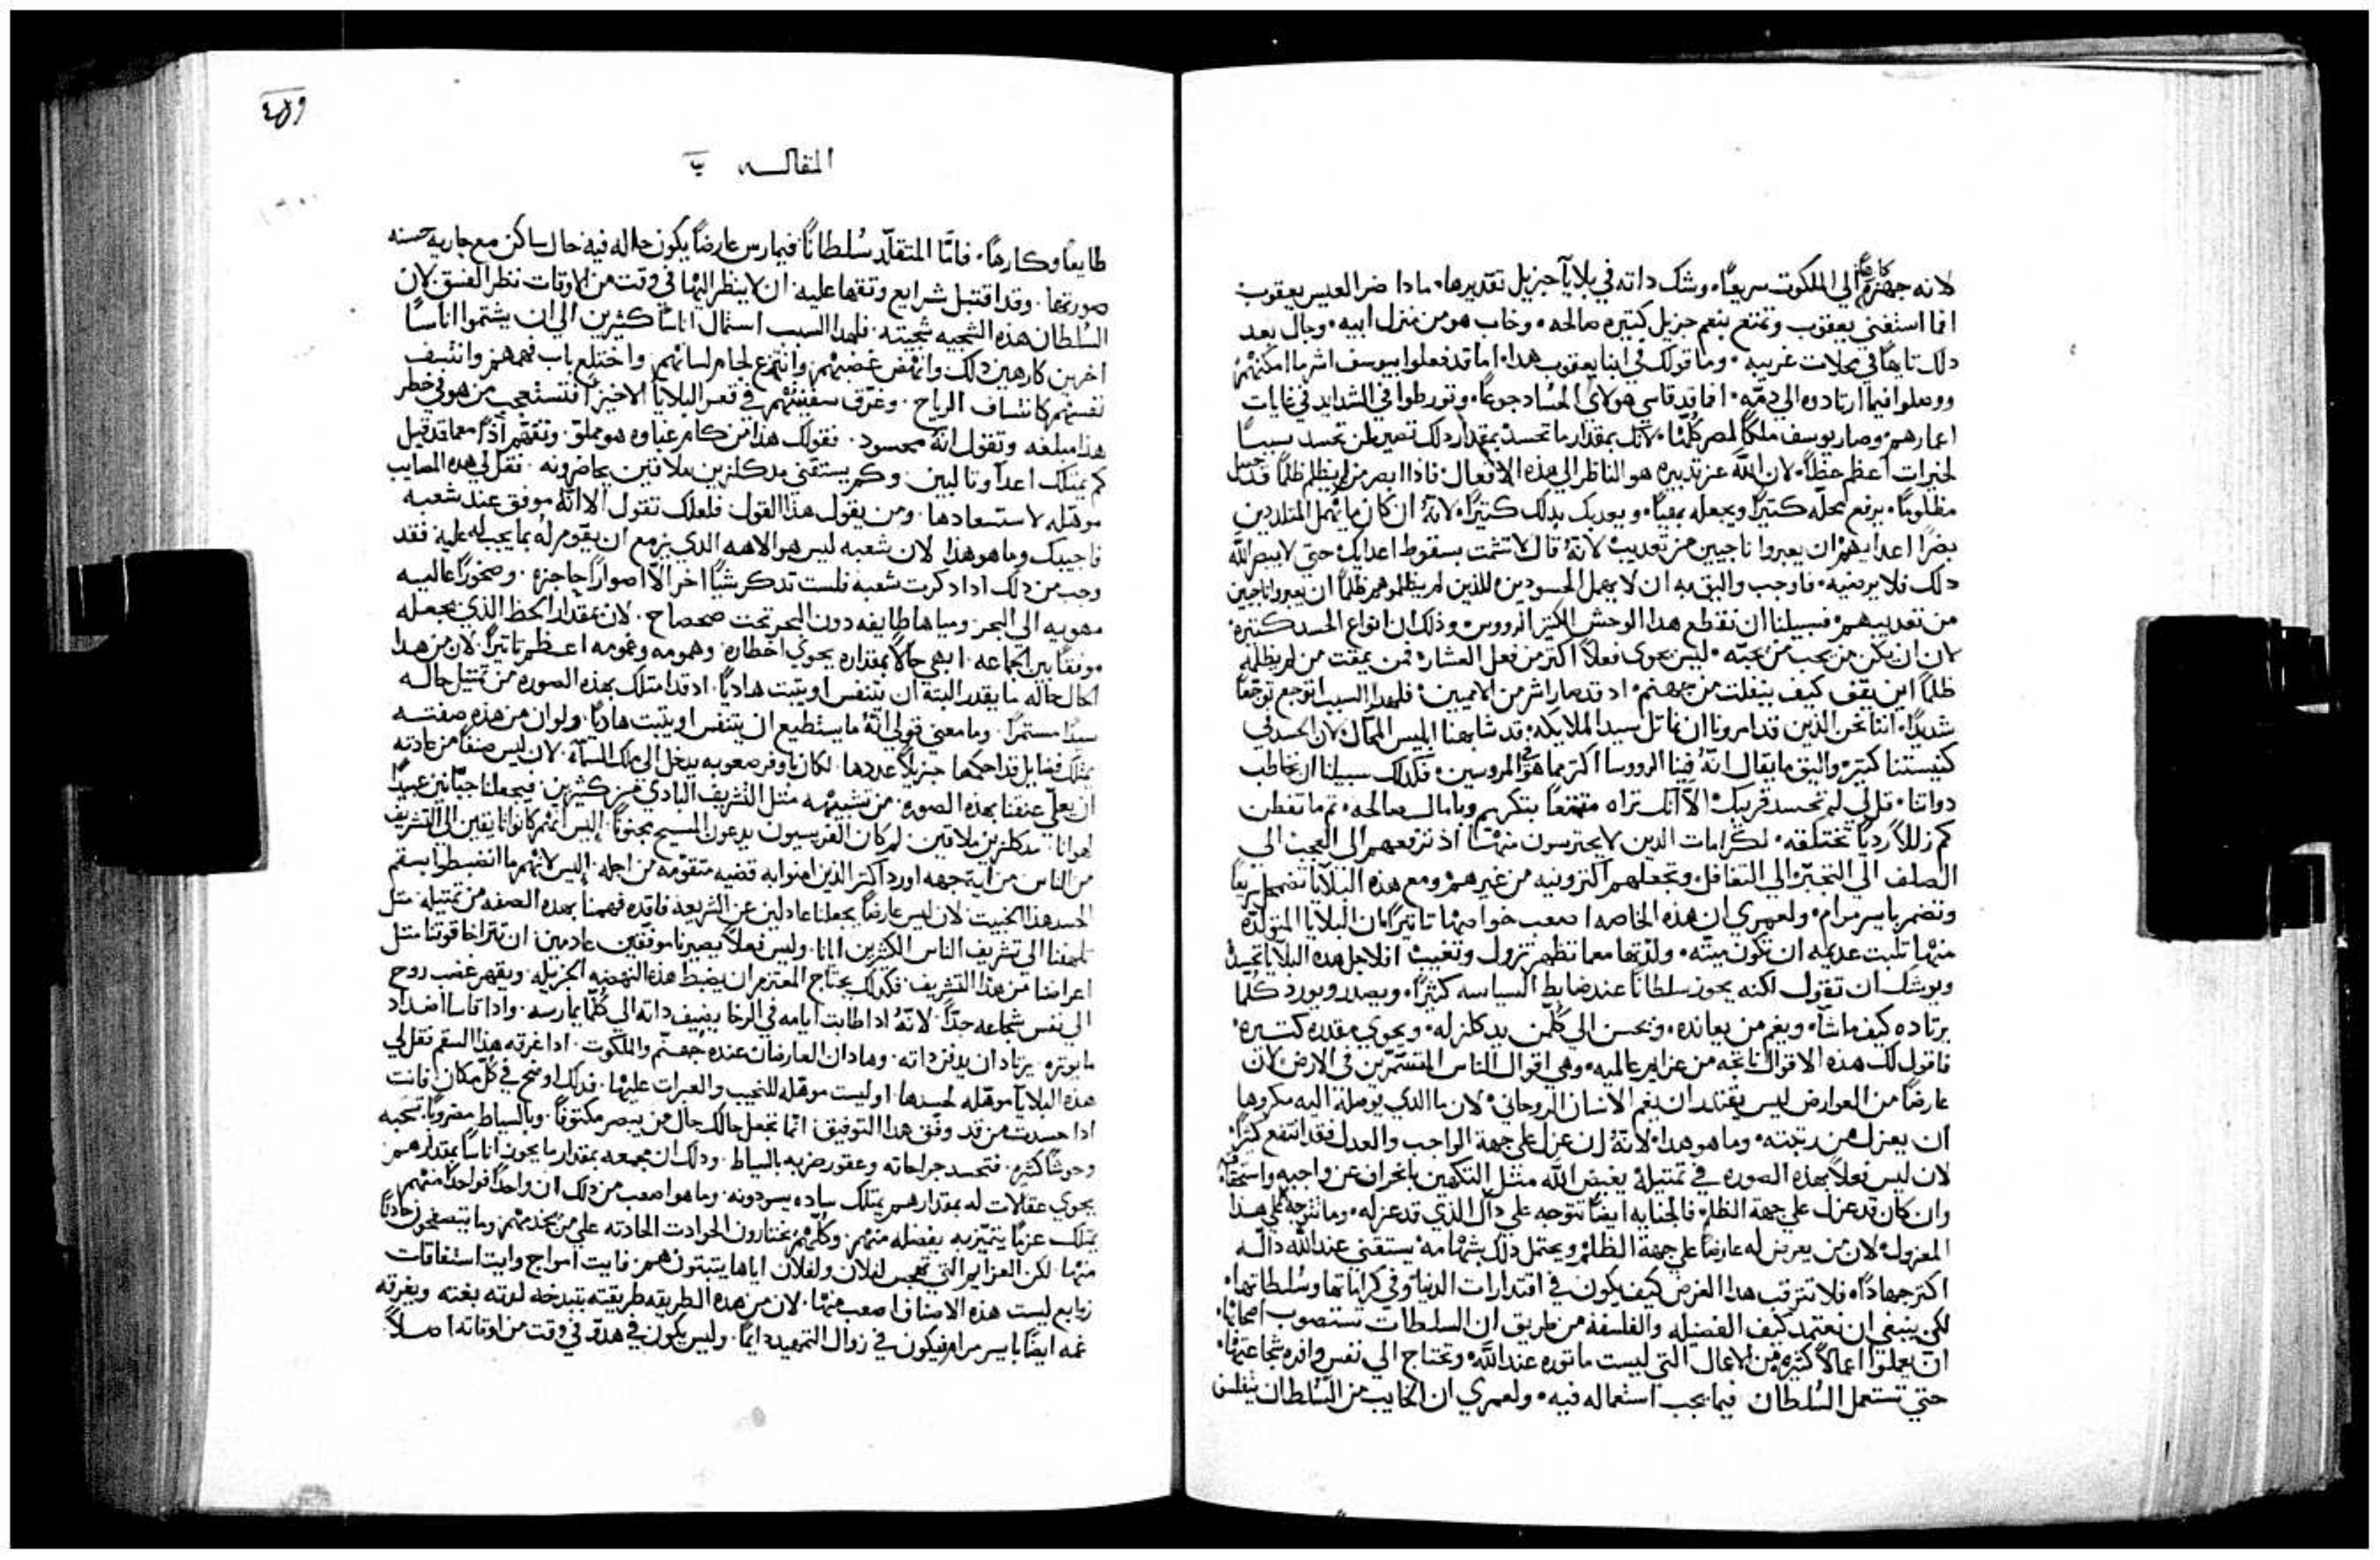 لانه جهزهم كارهًا الي الملكوت سريعًا، وشك داته في بلايا جزيل تقديرها، مادا ضر العيس يعقوب
اما استغني يعقوب وتمتع بنعم جزيل كتيره صالحه، وخاب هو من منزل ابيه، وجال بعد
دلك تايهًا في محلات غريبه، وما قولك في ابنا يعقوب هدا، اما قد فعلوا بيوسف اشر ما امكنهم
ووصلوا فيما ارتادوه الي دمه، افما قد قاسي هولاي الحساد جوعًا، وتورطوا في الشدايد في غايات
اعمارهم، وصار يوسف ملكًا لمصر كلها، لانك بمقدار ما تحسد بمقدار دلك تصير لمن تحسد سببًا
لخيرات اعظم حظًا، لان الله عز تدبيره هو الناظر الي هذه الافعال، فاذا ابصر من لم يظلم ظلمًا قد حصل
مظلومًا، يرفع محله كتيرًا ويجعله بهيًا، ويعذبك بدلك كتيرًا، لانه ان كان ما يهمل المتلددين
بضر اعدايهم ان يعبروا ناجيين من تعديب، لانه قال لا تشمت بسقوط اعدايك حتي لا يبصر الله
دلك فلا يرضيه، فاوجب واليق به ان لا يهمل الحسودين للذين لم يظلموهم ظلمًا ان يعبروا ناجيين
من تعديبهم، فسبيلنا ان نقطع هدا الوحش الكتير الرووس، وذلك ان انواع الحسد كتيره،
لان ان يكن من يحب من يحبه، ليس يحوي فعلًا اكتر من فعل العشار، فمن يمقت من لم يظلمه
ظلمًا اين يقف كيف ينفلت من جهنم، اد قد صار اشر من الاميين، فلهدا السبب اتوجع توجعًا
شديدًا، اننا نحن الذين قد امرونا ان نماتل لسيد الملايكه، قد شابهنا ابليس المحال، لان الحسد في
كنيستنا كتير، واليق ما يقال انه فينا الرووسا اكتر مما هو في المروسين، فكدلك سبيلنا ان نخاطب
دواتنا، قل لي لم تحسد قريبك، الا انك تراه متمتعًا بتكريم وبامال صالحه، تم ما تفطن
كم زللًا رديًا تختلقه، الكرامات الدين لا يحترسون منها، اذ ترفعهم الي العجب الي
الصلف الي التجبر الي التغافل، وتجعلهم اكتر ونيه من غيرهم، ومع هذه البلايا تضمحل سريعًا
وتضمر بايسر مرام، ولعمري ان هذه الخاصه اصعب خواصها تاتيرًا، ان البلايا المتولده
منها تلبت عديمه ان تكون ميته، ولدتها معما تظهر تزول وتغيب، افلاجل هده البلايا تحسد
ويوشك ان تقول لكنه يحوز سلطانًا عند ضابط السياسه كثيرًا، ويصدر ويورد كلما
يرتاده كيف ما شآ، ويغم من يعانده، ويحسن الي كل من يدكلز له، ويحوي مقدره كتيره،
فاقول لك هذه الاقوال ناتجه من عزايم عالميه، وهي اقوال الناس المتسمرين في الارض، لان
عارضًا من العوارض ليس يقتدر ان يغم الانسان الروحاني، لان ما الدي يوصله اليه مكروها
ان يعزله من رتبته، وما هو هدا، لانه ان عزل علي جهة الواجب والعدل فقد انتفع كتيرًا،
لان ليس فعلًا بهذه الصوره في تمتيله يغيض الله مثل التكهين بانحراف عن واجبه واستحقاقه
وان كان قد عزل علي جهة الظلم، فالجنايه ايضًا تتوجه علي داك الذي قد عزله، وما تتوجه علي هدا
المعزول، لان من يعرض له عارضًا علي جهة الظلم، ويحتمل ذلك بشهامه، يستقني عند الله داله
اكتر جهادًا، فلا تترقب هدا الغرض كيف يكون في اقتدارات الدنيا، وفي كراماتها وسلطاتها،
لكن ينبغي ان نعتمد كيف الفضيله والفلسفه من طريق ان السلطات تستصوب اصحابها،
ان يعملوا اعمالًا كثيره من الاعمال التي ليست ماتوره عند الله، وتحتاج الي نفس وافره شجاعتها،
حتي تستعمل السلطان فيما يجب استعماله فيه، ولعمري ان الخايب من السلطان يتفلسف
٤٥٩
المقاله ب
طايعًا وكارهًا، فاما المتقلد سلطانًا فيمارس عارضًا يكون حاله فيه حال ساكن مع جاريه حسنه
صورتها، وقد اقتبل شرايع وتقها عليه، ان لا ينظر اليها في وقت من الاوقات نظر الفسق، لان
السلطان هذه الشجيه شجيته، فلهدا السبب استمال اناسًا كثيرين الي ان يشتموا اناسًا
اخرين كارهين دلك، وانهض غضبهم، وانتزع لجام لسانهم، واختلع باب فمهم، وانتسف
نفسهم كانتساف الرياح، وغرق سفينتهم في قعر البلايا الاخير، افتستعجب من هو في خطر
هدا مبلغه وتقول انه محسود، فقولك هذا من كامر غباوه هو مملو، وتفهم اذًا معما قد قيل
كم يمتلك اعدآ وتالبين، وكم يستقني مدكلزين ملاقين يحاضرونه، فقل لي هده المصايب
موهله لاستسعادها، ومن يقول هذا القول، فلعلك تقول الا انه موفق عند شعبه
فاجيبك وما هو هذا، لان شعبه ليس هو الاهه الدي يزمع ان يقوم له بما يجب له عليه، فقد
وجب من دلك ادا دكرت شعبه فلست تدكر شيًا اخر الا اصوارًا حاجزه، وصخورًا عاليه
مهويه الي البحر، ومياها طايفه دون البحر تحت صحصاح، لان بمقدار الحظ الذي يجعله
موفقًا بين الجماعه، ابهي حالًا بمقداره يحوي اخطاره، وهمومه وغمومه اعظم تاتيرًا، لان من هدا
الحال حاله ما يقدر البته ان يتنفس او يتبت هاديًا، اد قد امتلك بهذه الصوره من تمتيل حاله
سيدًا مستمرًا، وما معني قولي انه ما يستطيع ان يتنفس او يتبت هاديًا، ولو ان من هذه صفته
يمتلك فضايل قد احكمها جزيلًا عددها، لكان باوفر صعوبه يدخل الي ملك السمآ، لان ليس صنفًا من عادته
ان يعلي عنقنا بهذه الصوره من تشبيهه مثل التشريف البادي من كثيرين، فيجعلنا جبانين عبيدًا
اهوانًا مدكلزين ملاقين، لم كان الفريسيون يدعون المسيح مجنونًا، اليس انهم كانوا تايقين الي التشريف
من الناس، من اية جهه اورد اكتر الذين امنوا به قضيه متقومه من اجله، اليس لانهم ما انضبطوا بسقم
الحسد هذا الخبيت، لان ليس عارضًا يجعلنا عادلين عن الشريعه فاقده فهمنا بهده الصفه من تمتيله متل
تلهفنا الي تشريف الناس الكثيرين ايانا، وليس فعلًا يصيرنا موفقين عادمين ان تتراخا قوتنا متل
اعراضنا من هدا التشريف، فكدلك يحتاج المعتزم ان يضبط هذه النهضه الجزيله، ويقهر غضب روح
الي نفس شجاعه جدًا، لانه ادا طابت ايامه في الرخا يضيف داته الي كلما يمارسه، وادا قاسا اضداد
ما يوتره يرتاد ان يدفن داته، وهادان العارضان عنده جهنم والملكوت، ادا غرقه هذا السقم، فقل لي
هذه البلايا موهله لحسدها، او ليست موهله للنحيب والعبرات عليها، فدلك اوضح في كل مكان، فانت
ادا حسدت من قد وفق هدا التوفيق، انما تجعل حالك حال من يبصر مكتوفًا وبالسياط مضروبًا، تسحبه
وحوشًا كثيره، فتحسد جراحاته وعقور ضربه بالسياط، ودلك ان جميعه بمقدار ما يحوي اناسًا بمقدارهم
يحوي عقالات له، بمقدارهم يمتلك ساده يسودونه، وما هو اصعب من دلك ان واحدًا فواحدًا منهم
يمتلك عزمًا يتميز به بفضله منهم، وكلهم يختارون الحوادت الحادته علي من يخدمهم، وما يتصفحون حادتًا
منها، لكن العزايم التي تعجب لفلان ولفلان اياها يتبتون هم، فايت امواج وايت استفاقات
زوابع ليست هذه الاصناف اصعب منها، لان من هده الطريقه طريقته تبدخه لدته بغته ويغرقه
غمه ايضًا بايسر مرام، فيكون في زوال التمهيد دايمًا، وليس يكون في هدو في وقت من اوقاته اصلًا